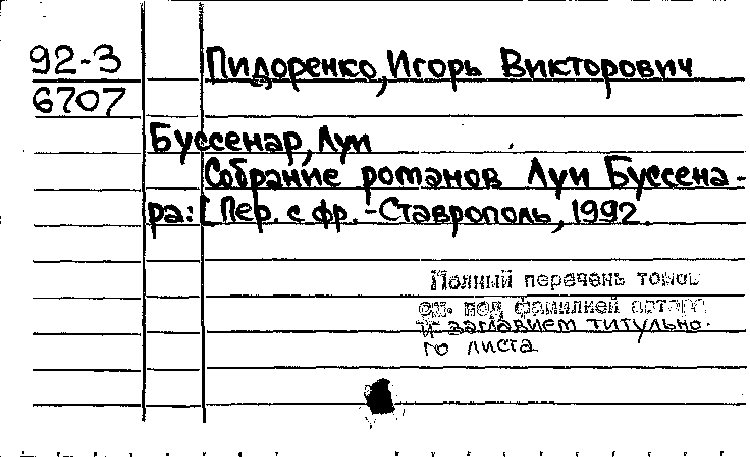 92-3 Пидоренко, Игорь Викторович
6707
Буссенар, Луи
Собрание романов Луи Буссена-
ра: [Пер. с фр. - Ставрополь, 1992.
Полный перечень томов
см. под фамилией автора
и заглавием титульно-
го листа